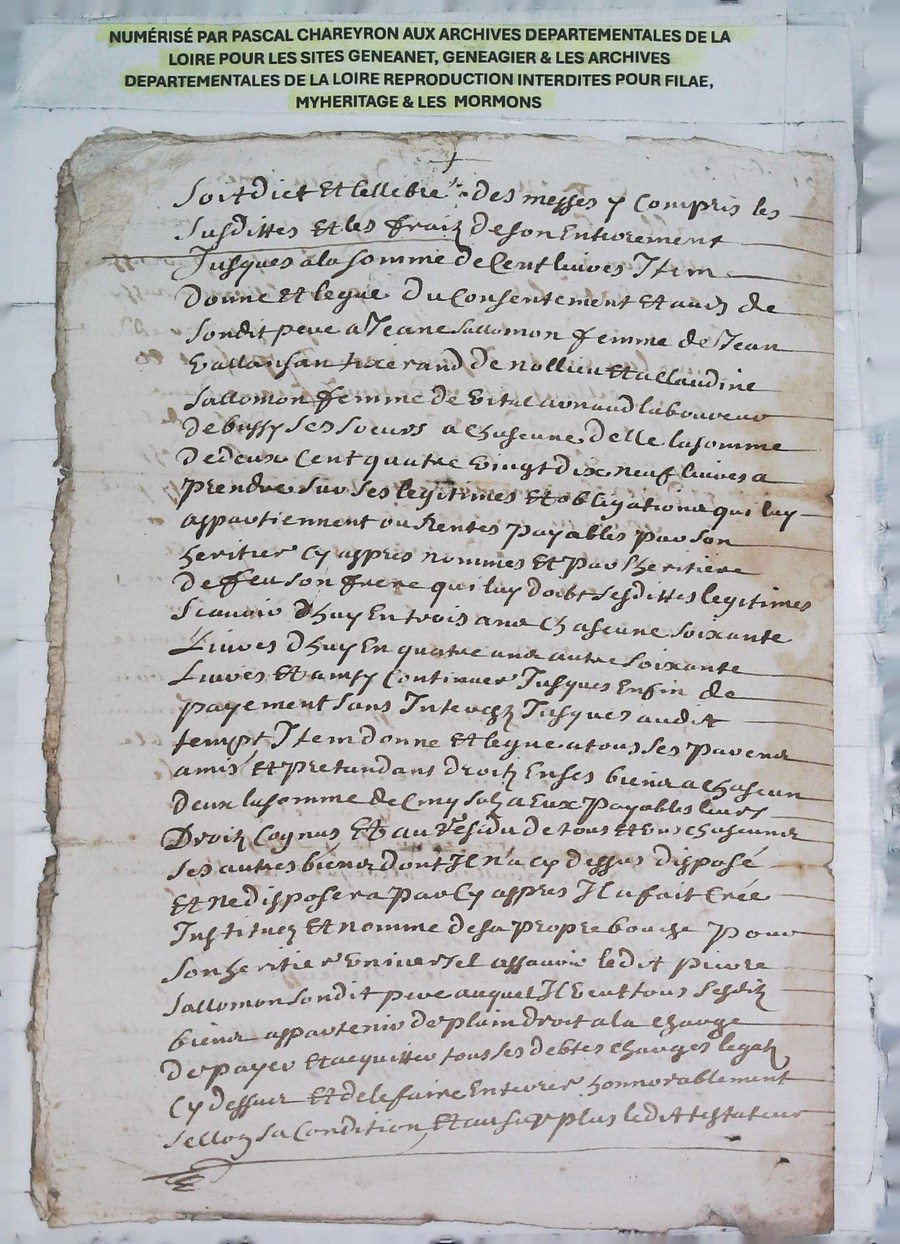 NUMÉRISÉ PAR PASCAL CHAREYRON AUX ARCHIVES DEPARTEMENTALES DE LA
LOIRE POUR LES SITES GENEANET, GENEAGIER & LES ARCHIVES
DEPARTEMENTALES DE LA LOIRE REPRODUCTION INTERDITES POUR FILAE,
MYHERITAGE & LES MORMONS
Soit dict Et cellebré des messes y Compris les
Susdittes Et les fraiz de son Enterement
Jusques a la somme de Cent livres Item
Donne Et legue Du Consentement Et advis de
Sondit pere a Jeane Sallomon femme de Jean
de nollieu Et a Claudine
Sallomon femme de Vital arnaud laboureur
de bussy Ses Soeurs a Chascune delle la somme
De deux Cent quatre Vingt dix neuf livres a
Prendre Sur Ses legitimes Et obligations qui luy
appartiennent ou Rentes payables par son
heritier Cy appres nommes Et par lheritiere
De feu son frere qui luy doibt Sesdittes legitimes
Scavoir Dhuy En trois ans Chascune Soixante
Livres dhuy En quatre ans autre Soixante
Livres Et ainsy Continuer Jusques Enfin de
payement Sans Interestz Jusques audit
tempt Item donne Et legue a tous Ses parens
amis Et pretandans droitz En ses biens a Chascun
Deux la somme de Cinq Solz a Eux payables leurs
Droitz Cognus Et au résidu de tous Et uns Chascuns
Ses autres biens dont Il n'a cy dessus disposé
Et ne disposera par Cy appres Il a fait Crée
Institué Et nomme de sa propre bouche pour
Son heritier Universel assavoir ledit pierre
Sallomon Sondit pere auquel Il veut tous Sesditz
biens appartenir de plain droit a la charge
De payer Et acquitter tous Ses debtes charges legatz
Cy dessus Et de le faire Enterrer honnorablement
Sellon Sa Condition, Et au Surplus ledit testateur